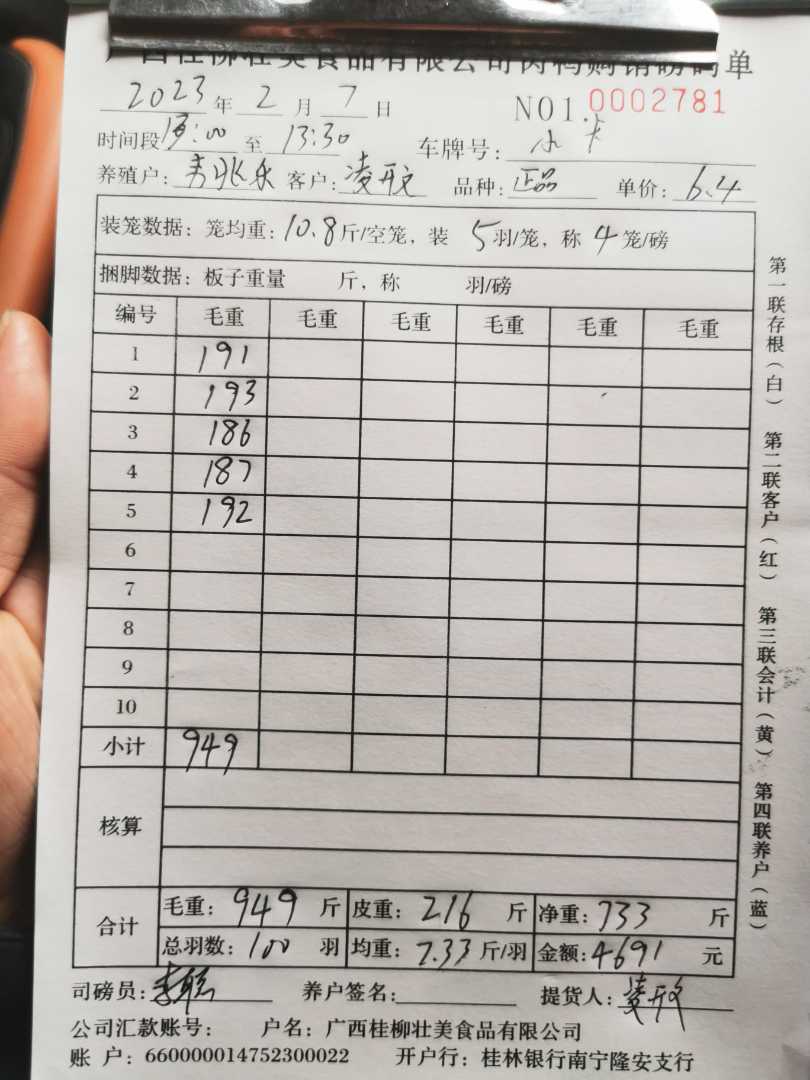 广西桂柳壮美食品有限公司肉鸭购销磅码单
2023年2月7日 NO1.0002781
时间段13:00至13:30 车牌号:小卡
养殖户: 客户:凌开文 品种:正品 单价:6.4
装笼数据:笼均重:10.8斤/空笼,装 5羽/笼,称 4笼/磅
捆脚数据:板子重量 斤,称 羽/磅
编号 毛重 毛重 毛重 毛重 毛重 毛重
1 191
2 193
3 186
4 187
5 192
6
7
8
9
10
小计 949
核算
合计 毛重:949斤 皮重:216斤 净重:733斤
总羽数:100羽 均重:7.33斤/羽 金额:4691元
司磅员: 养户签名: 提货人:凌开文
公司汇款账号: 户名:广西桂柳壮美食品有限公司
账 户:660000014752300022 开户行:桂林银行南宁隆安支行
第一联存根(白) 第二联客户(红) 第三联会计(黄) 第四联养户(蓝)